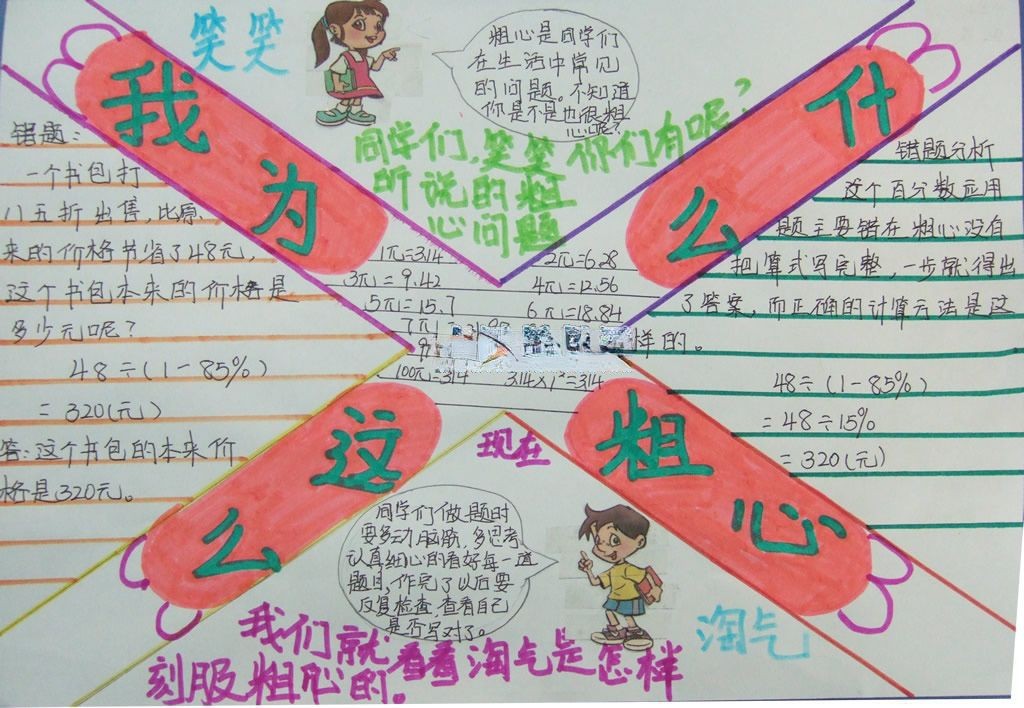 我为什么这么粗心
笑笑
粗心是同学们
在生活中常见
的问题。不知道
你是不是也很粗
心呢?
同学们,笑笑你们有呢?
听说的粗
心问题
错题:
一个书包打
八五折出售,比原
来的价格节省了48元,
这个书包本来的价格是
多少元呢?
48÷(1-85%)
=320(元)
答:这个书包的本来价
格是320元。
1π=3.14 2π=6.28
3π=9.42 4π=12.56
5π=15.7 6π=18.84
7π
9
100π=314 3.14×1²=3.14
错题分析
这个百分数应用
题主要错在粗心没有
把算式写完整,一步就得出
了答案,而正确的计算方法是这
样的。
48÷(1-85%)
=48÷15%
=320(元)
现在
同学们做题时
要多动脑筋,多思考
认真细心的看好每一道
题目,作完了以后要
反复检查,查看自己
是否写对了。
淘气
我们就看看淘气是怎样
刻服粗心的。